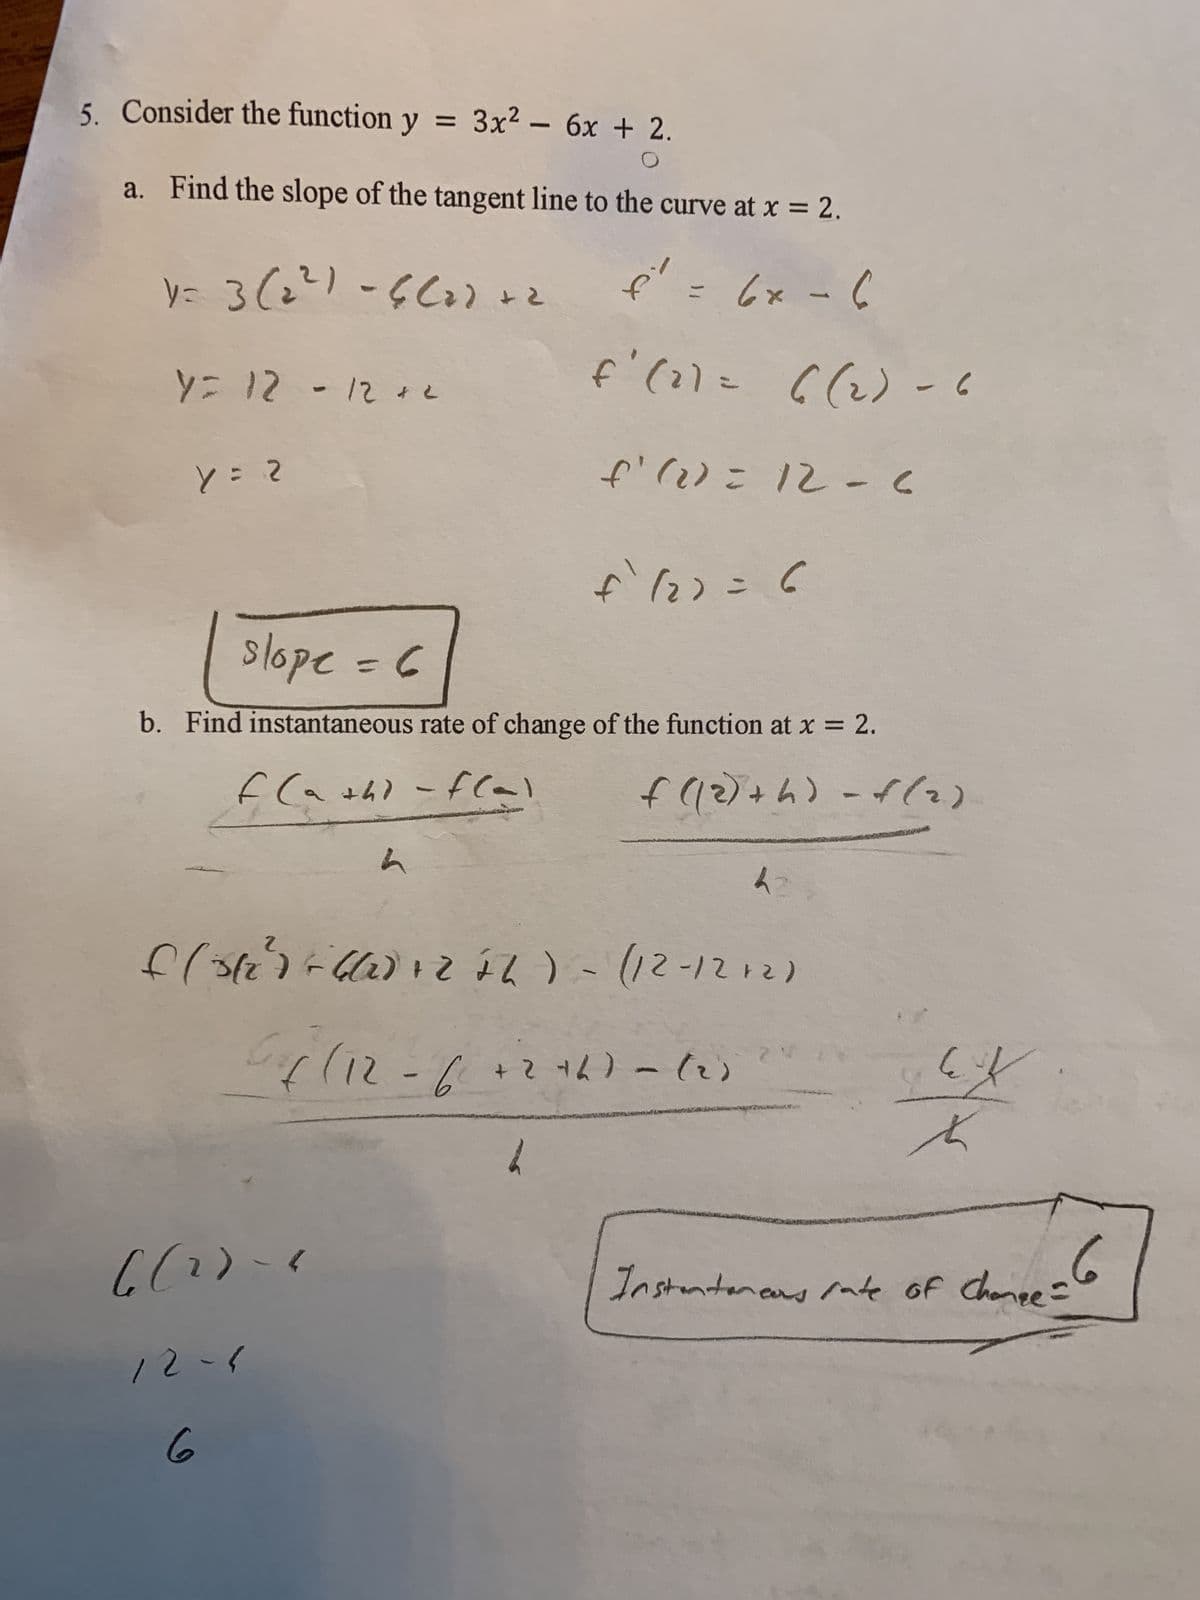 5. Consider the function y = 3x² – 6x + 2.
a. Find the slope of the tangent line to the curve at x = 2.
y = 3(2²) - 6(2) + 2
f' = 6x - 6
y = 12 - 12 + 2
f'(2) = 6(2) - 6
y = 2
f'(2) = 12 - 6
f'(2) = 6
slope = 6
b. Find instantaneous rate of change of the function at x = 2.
f(a+h) - f(a)
h
f((2)+h) - f(2)
h
f(3(2²) - 6(2) + 2 + h) - (12-12+2)
f(12 - 6 + 2 + h) - (2)
h
6h
h
6(2) - 6
12 - 6
6
Instantaneous rate of change = 6